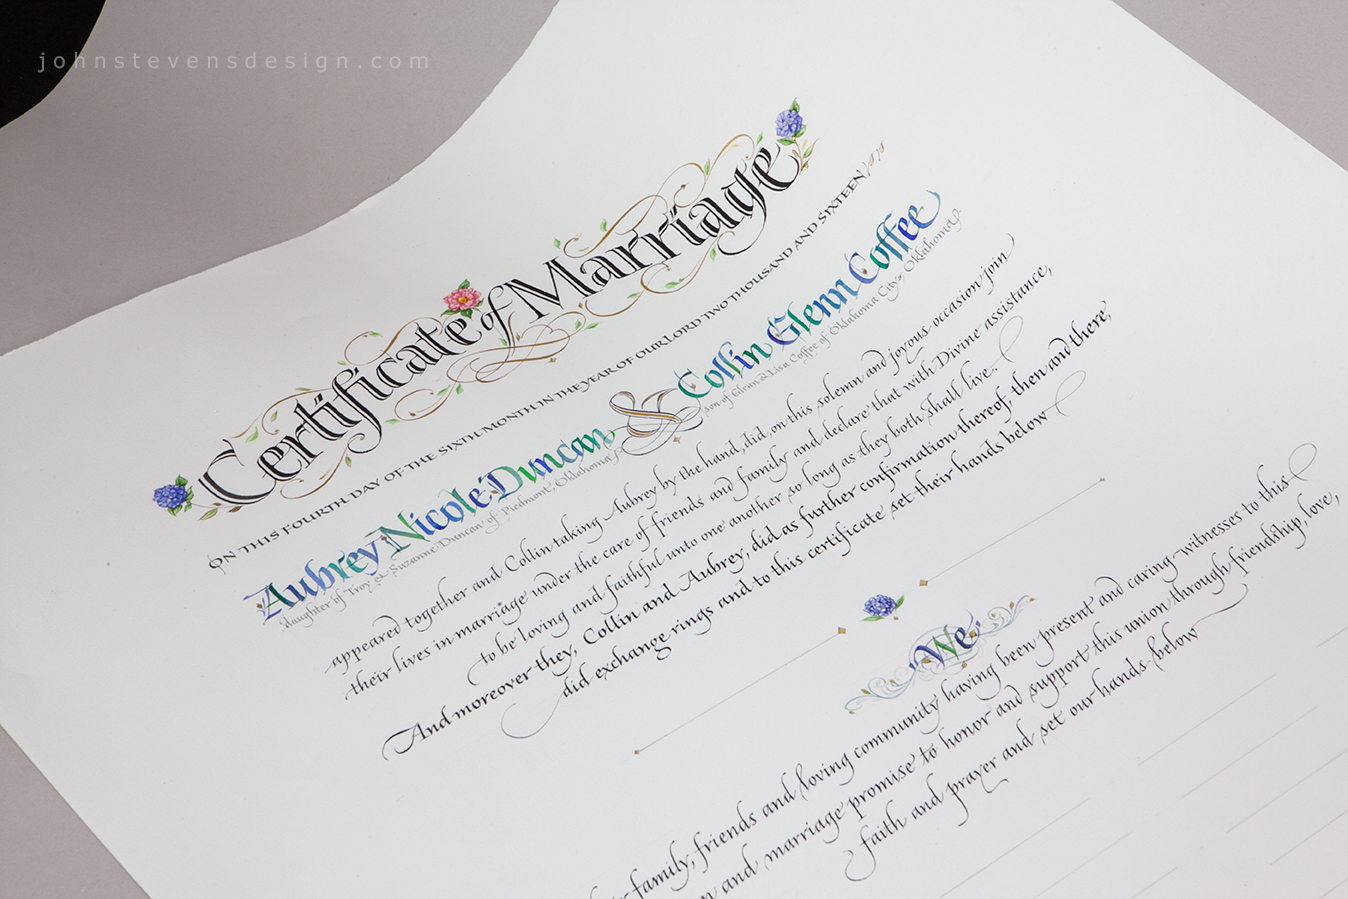 johnstevensdesign.com
Certificate of Marriage
ON THIS FOURTH DAY OF THE SIXTH MONTH IN THE YEAR OF OUR LORD TWO THOUSAND AND SIXTEEN
Aubrey Nicole Duncan & Collin Glenn Coffee
daughter of Troy & Suzanne Duncan of Piedmont, Oklahoma
son of Glenn & Lisa Coffee of Oklahoma City, Oklahoma
appeared together and Collin taking Aubrey by the hand, did, on this solemn and joyous occasion join
their lives in marriage under the care of friends and family and declare that with Divine assistance,
to be loving and faithful unto one another so long as they both shall live.
And moreover they, Collin and Aubrey, did as further confirmation thereof, then and there,
did exchange rings and to this certificate set their hands below
We,
family, friends and loving community having been present and caring witnesses to this
and marriage promise to honor and support this union through friendship, love,
faith and prayer and set our hands below